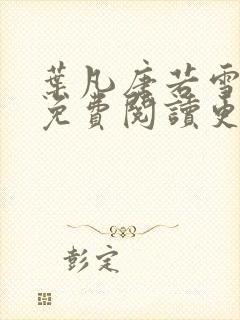 葉凡唐若雪
免費閱讀更
彭定